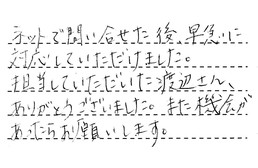 ネットで問い合せた後、早急に
対応していただけました。
担当していただいた渡辺さん、
ありがとうございました。また機会が
あったらお願いします。